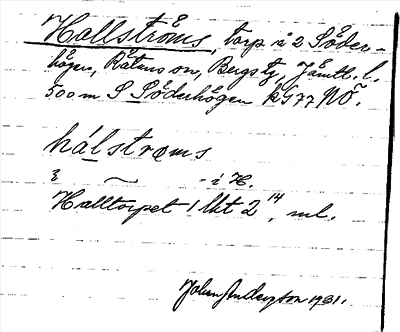 Hallströms, torp i 2 Söder-
högen, Rätans sn, Bergs tg, Jämtl. l.
500 m S Söderhögen kG77NÖ.
hálstrǫms
ᶎ — - i H.
Hælltorpet 1 lkt 2¹⁴, ml.
Johan Anderzson 1931.